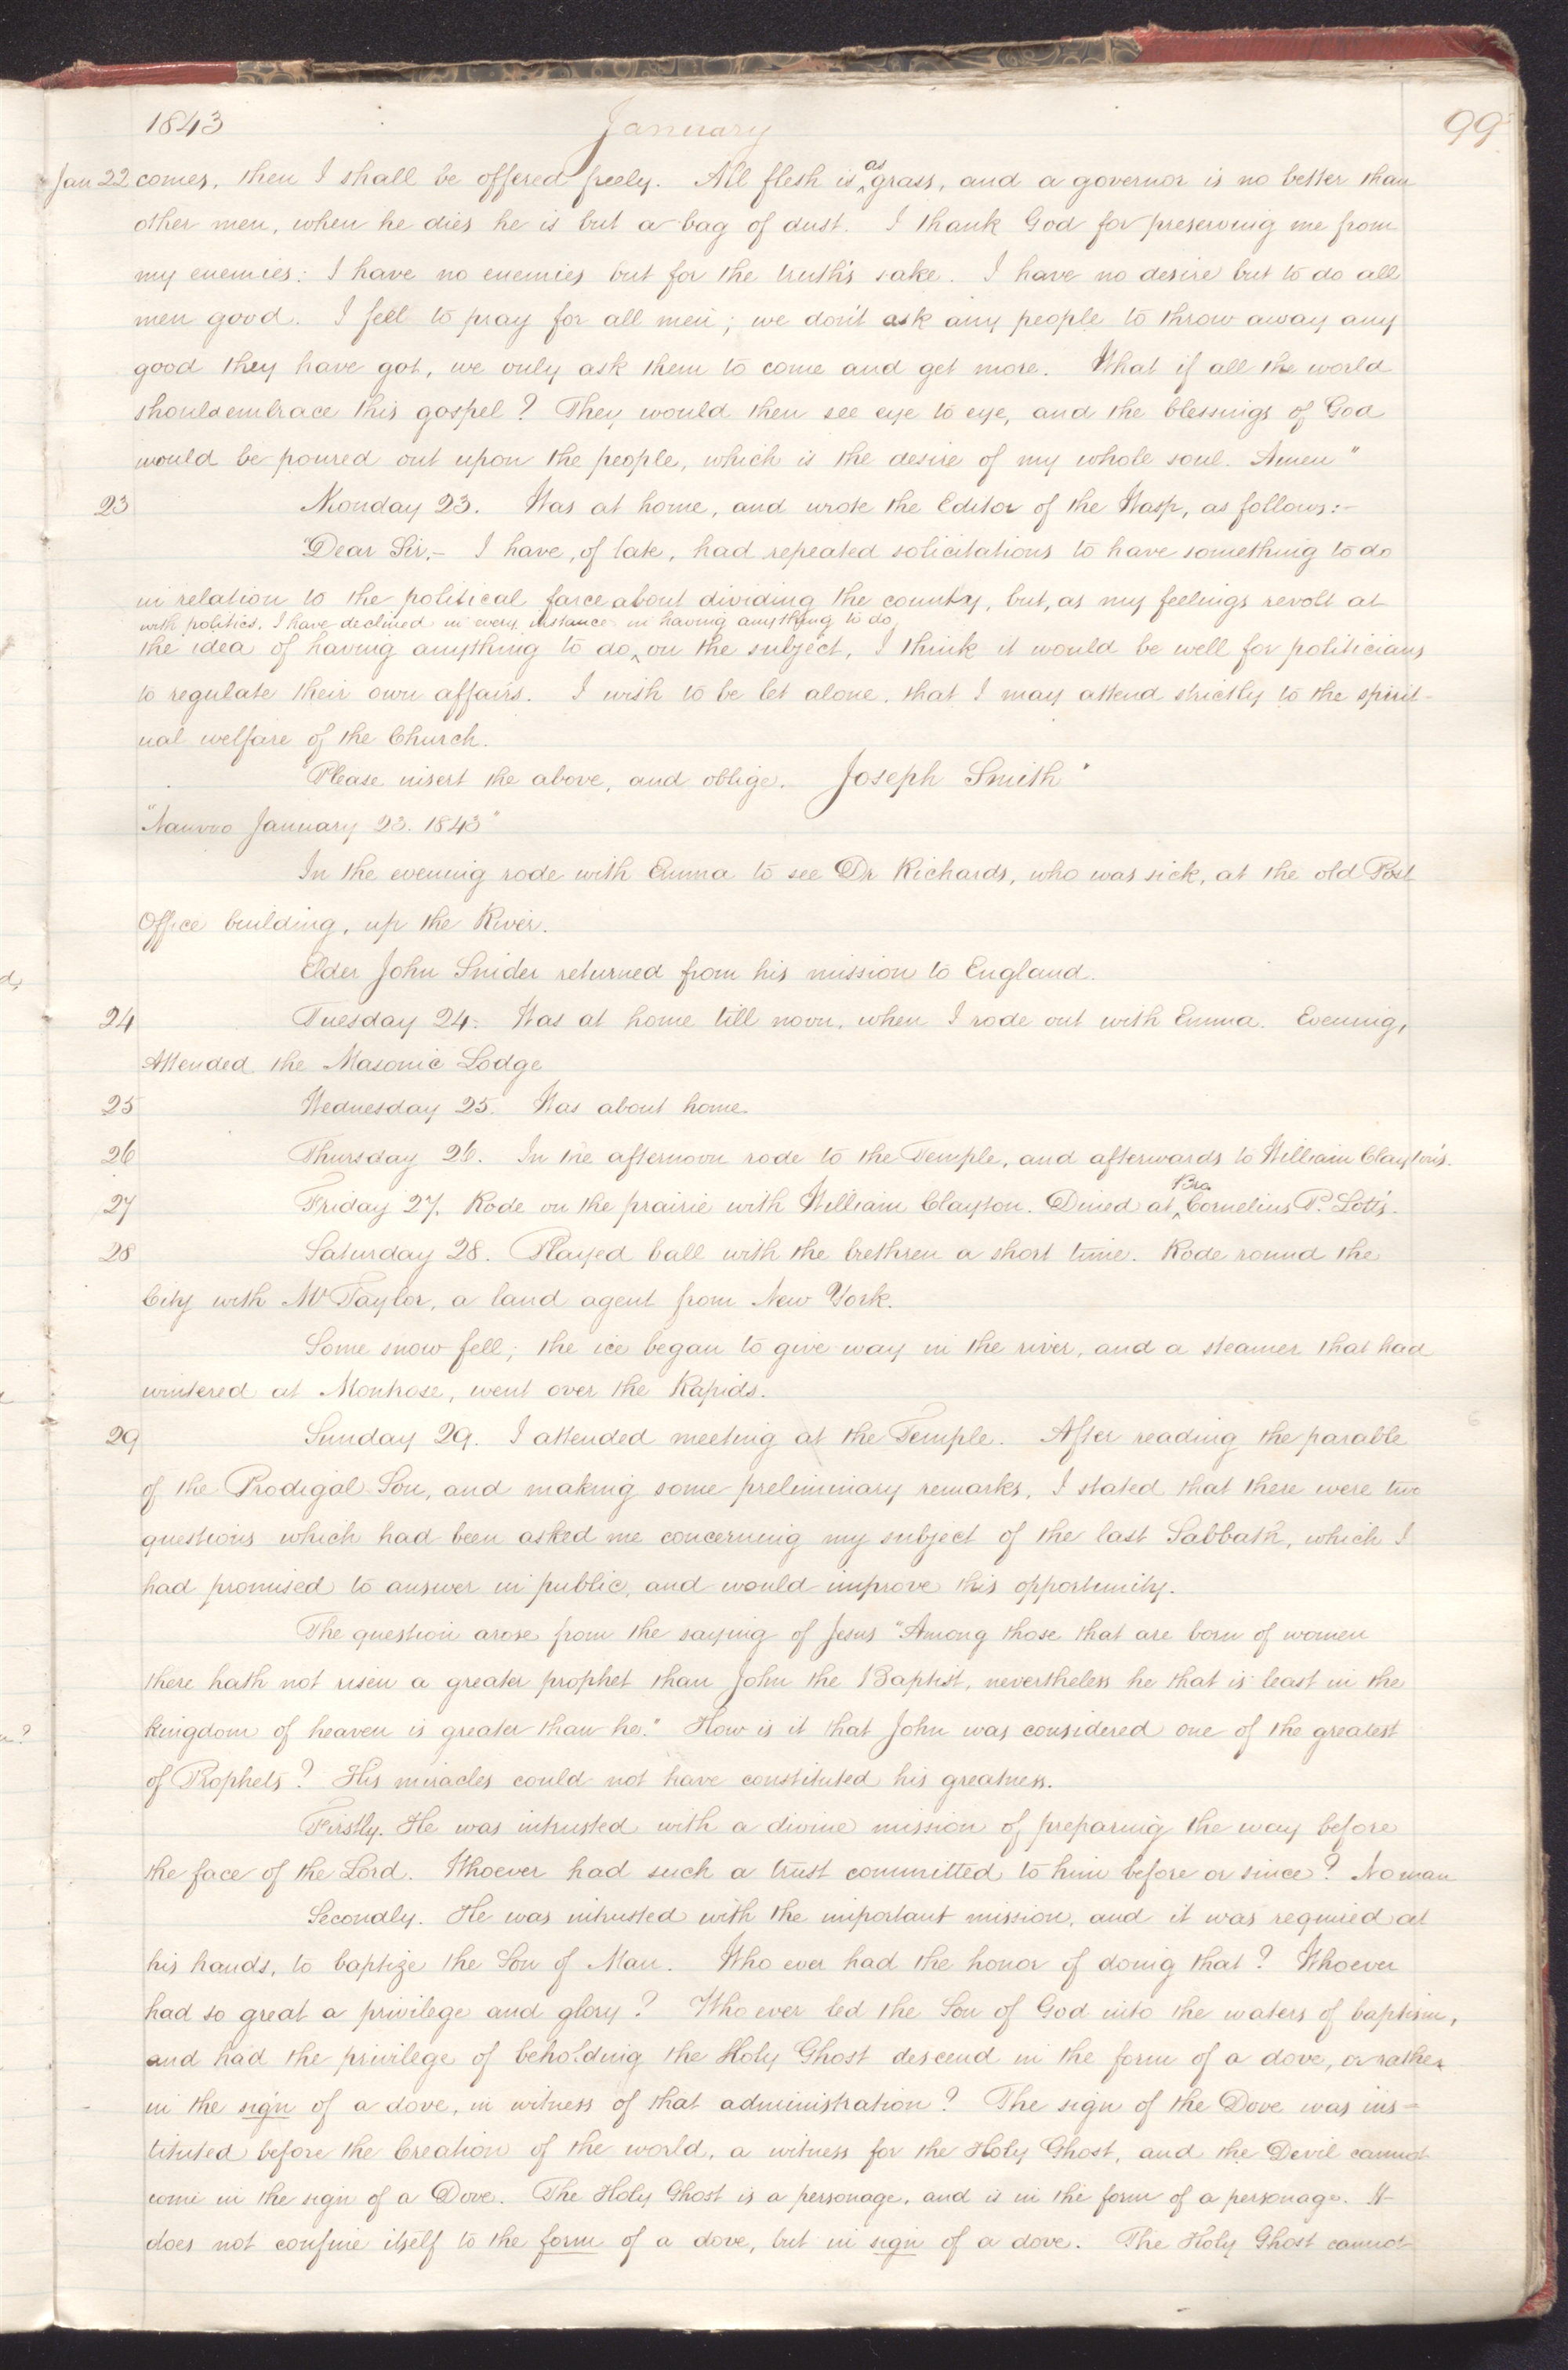 1843 January 99
Jan 22 comes, then I shall be offered freely. All flesh is ^as grass, and a governor is no better than
other men, when he dies he is but a bag of dust. I thank God for preserving me from
my enemies: I have no enemies but for the truth's sake. I have no desire but to do all
men good. I feel to pray for all men; we don't ask any people to throw away any
good they have got, we only ask them to come and get more. What if all the world
should embrace this gospel? They would then see eye to eye, and the blessings of God
would be poured out upon the people, which is the desire of my whole soul. Amen"
23 Monday 23. Was at home, and wrote the Editor of the Wasp, as follows:-
"Dear Sir,- I have, of late, had repeated solicitations to have something to do
in relation to the political farce about dividing the county, but, as my feelings revolt at
with politics, I have declined in every instance in having anything to do,
the idea of having anything to do ^ on the subject, I think it would be well for politicians
to regulate their own affairs. I wish to be let alone, that I may attend strictly to the spirit-
ual welfare of the Church.
"Please insert the above, and oblige. Joseph Smith"
"Nauvoo January 23. 1843"
In the evening rode with Emma to see Dr Richards, who was sick, at the old Post
Office building, up the River.
Elder John Snider returned from his mission to England.
24 Tuesday 24. Was at home till noon, when I rode out with Emma. Evening,
Attended the Masonic Lodge
25 Wednesday 25. Was about home.
26 Thursday 26. In the afternoon rode to the Temple, and afterwards to William Clayton's.
27 Friday 27. Rode on the prairie with William Clayton. Dined at ^Bro Cornelius P. Lott's.
28 Saturday 28. Played ball with the brethren a short time. Rode round the
City with Mr Taylor, a land agent from New York.
Some snow fell; the ice began to give way in the river, and a steamer that had
wintered at Montrose, went over the Rapids.
29 Sunday 29. I attended meeting at the Temple. After reading the parable
of the Prodigal Son, and making some preliminary remarks, I stated that there were two
questions which had been asked me concerning my subject of the last Sabbath, which I
had promised to answer in public, and would improve this opportunity.
The question arose from the saying of Jesus "Among those that are born of women
there hath not risen a greater prophet than John the Baptist, nevertheless he that is least in the
kingdom of heaven is greater than he." How is it that John was considered one of the greatest
of Prophets? His miracles could not have constituted his greatness.
Firstly. He was intrusted with a divine mission of preparing the way before
the face of the Lord. Whoever had such a trust committed to him before or since? No man
Secondly. He was intrusted with the important mission, and it was required at
his hands, to baptize the Son of Man. Who ever had the honor of doing that? Whoever
had so great a privilege and glory? Who ever led the Son of God into the waters of baptism,
and had the privilege of beholding the Holy Ghost descend in the form of a dove, or rather
in the sign of a dove, in witness of that administration? The sign of the Dove was ins-
tituted before the Creation of the world, a witness for the Holy Ghost, and the Devil cannot
come in the sign of a Dove. The Holy Ghost is a personage, and is in the form of a personage. It
does not confine itself to the form of a dove, but in sign of a dove. The Holy Ghost cannot